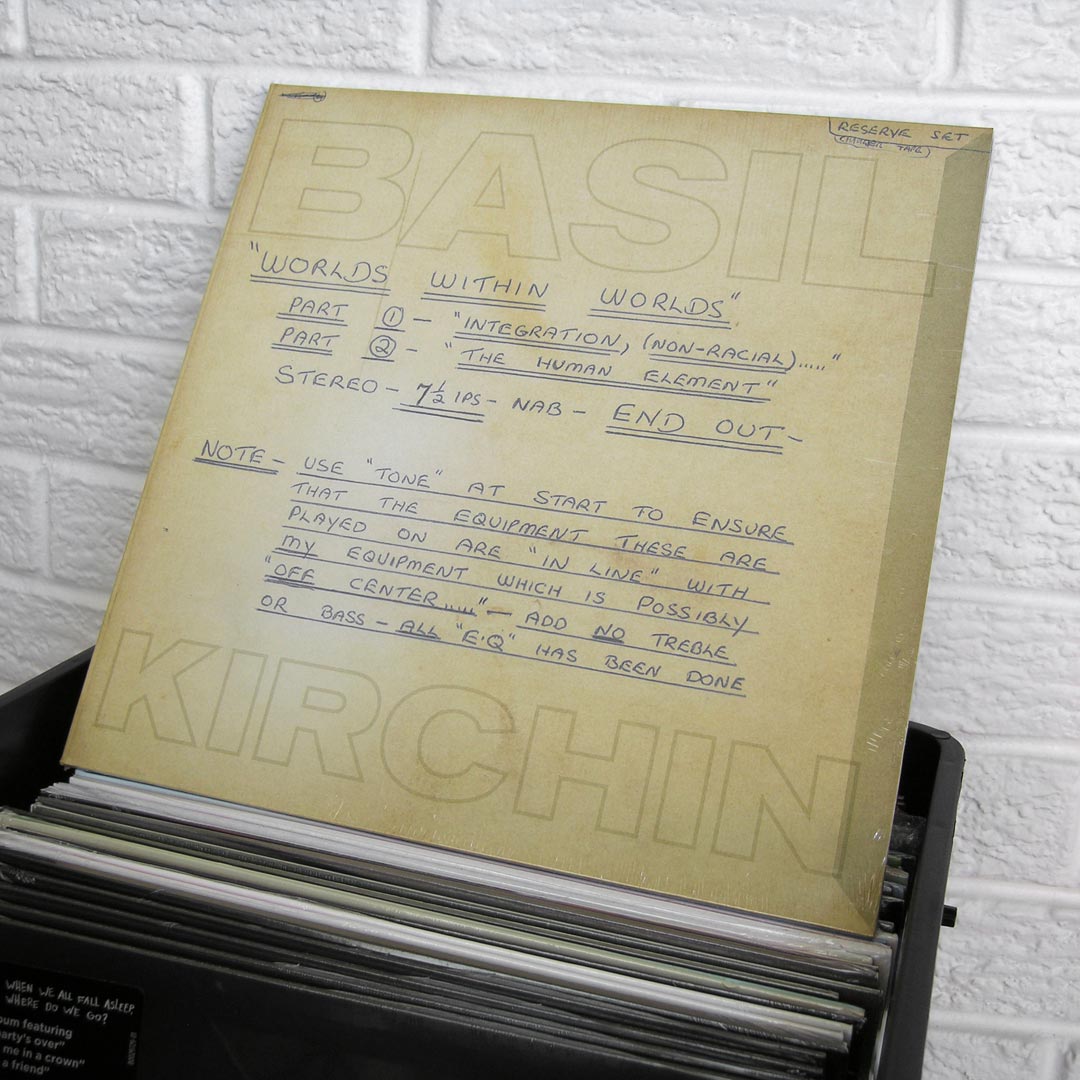 RESERVE SET
BASIL
"WORLDS WITHIN WORLDS"
PART ① - "INTEGRATION, (NON-RACIAL)....."
PART ② - "THE HUMAN ELEMENT"
STEREO - 7½ IPS - NAB - END OUT -
NOTE - USE "TONE" AT START TO ENSURE
THAT THE EQUIPMENT THESE ARE
PLAYED ON ARE "IN LINE" WITH
MY EQUIPMENT WHICH IS POSSIBLY
"OFF CENTER....." - ADD NO TREBLE
OR BASS - ALL "E.Q" HAS BEEN DONE
KIRCHIN
WHEN WE ALL FALL ASLEEP,
WHERE DO WE GO?
featuring
over"
me in a crown"
a friend"